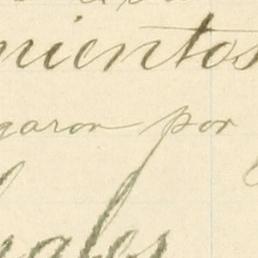 mientos
garon por
ales